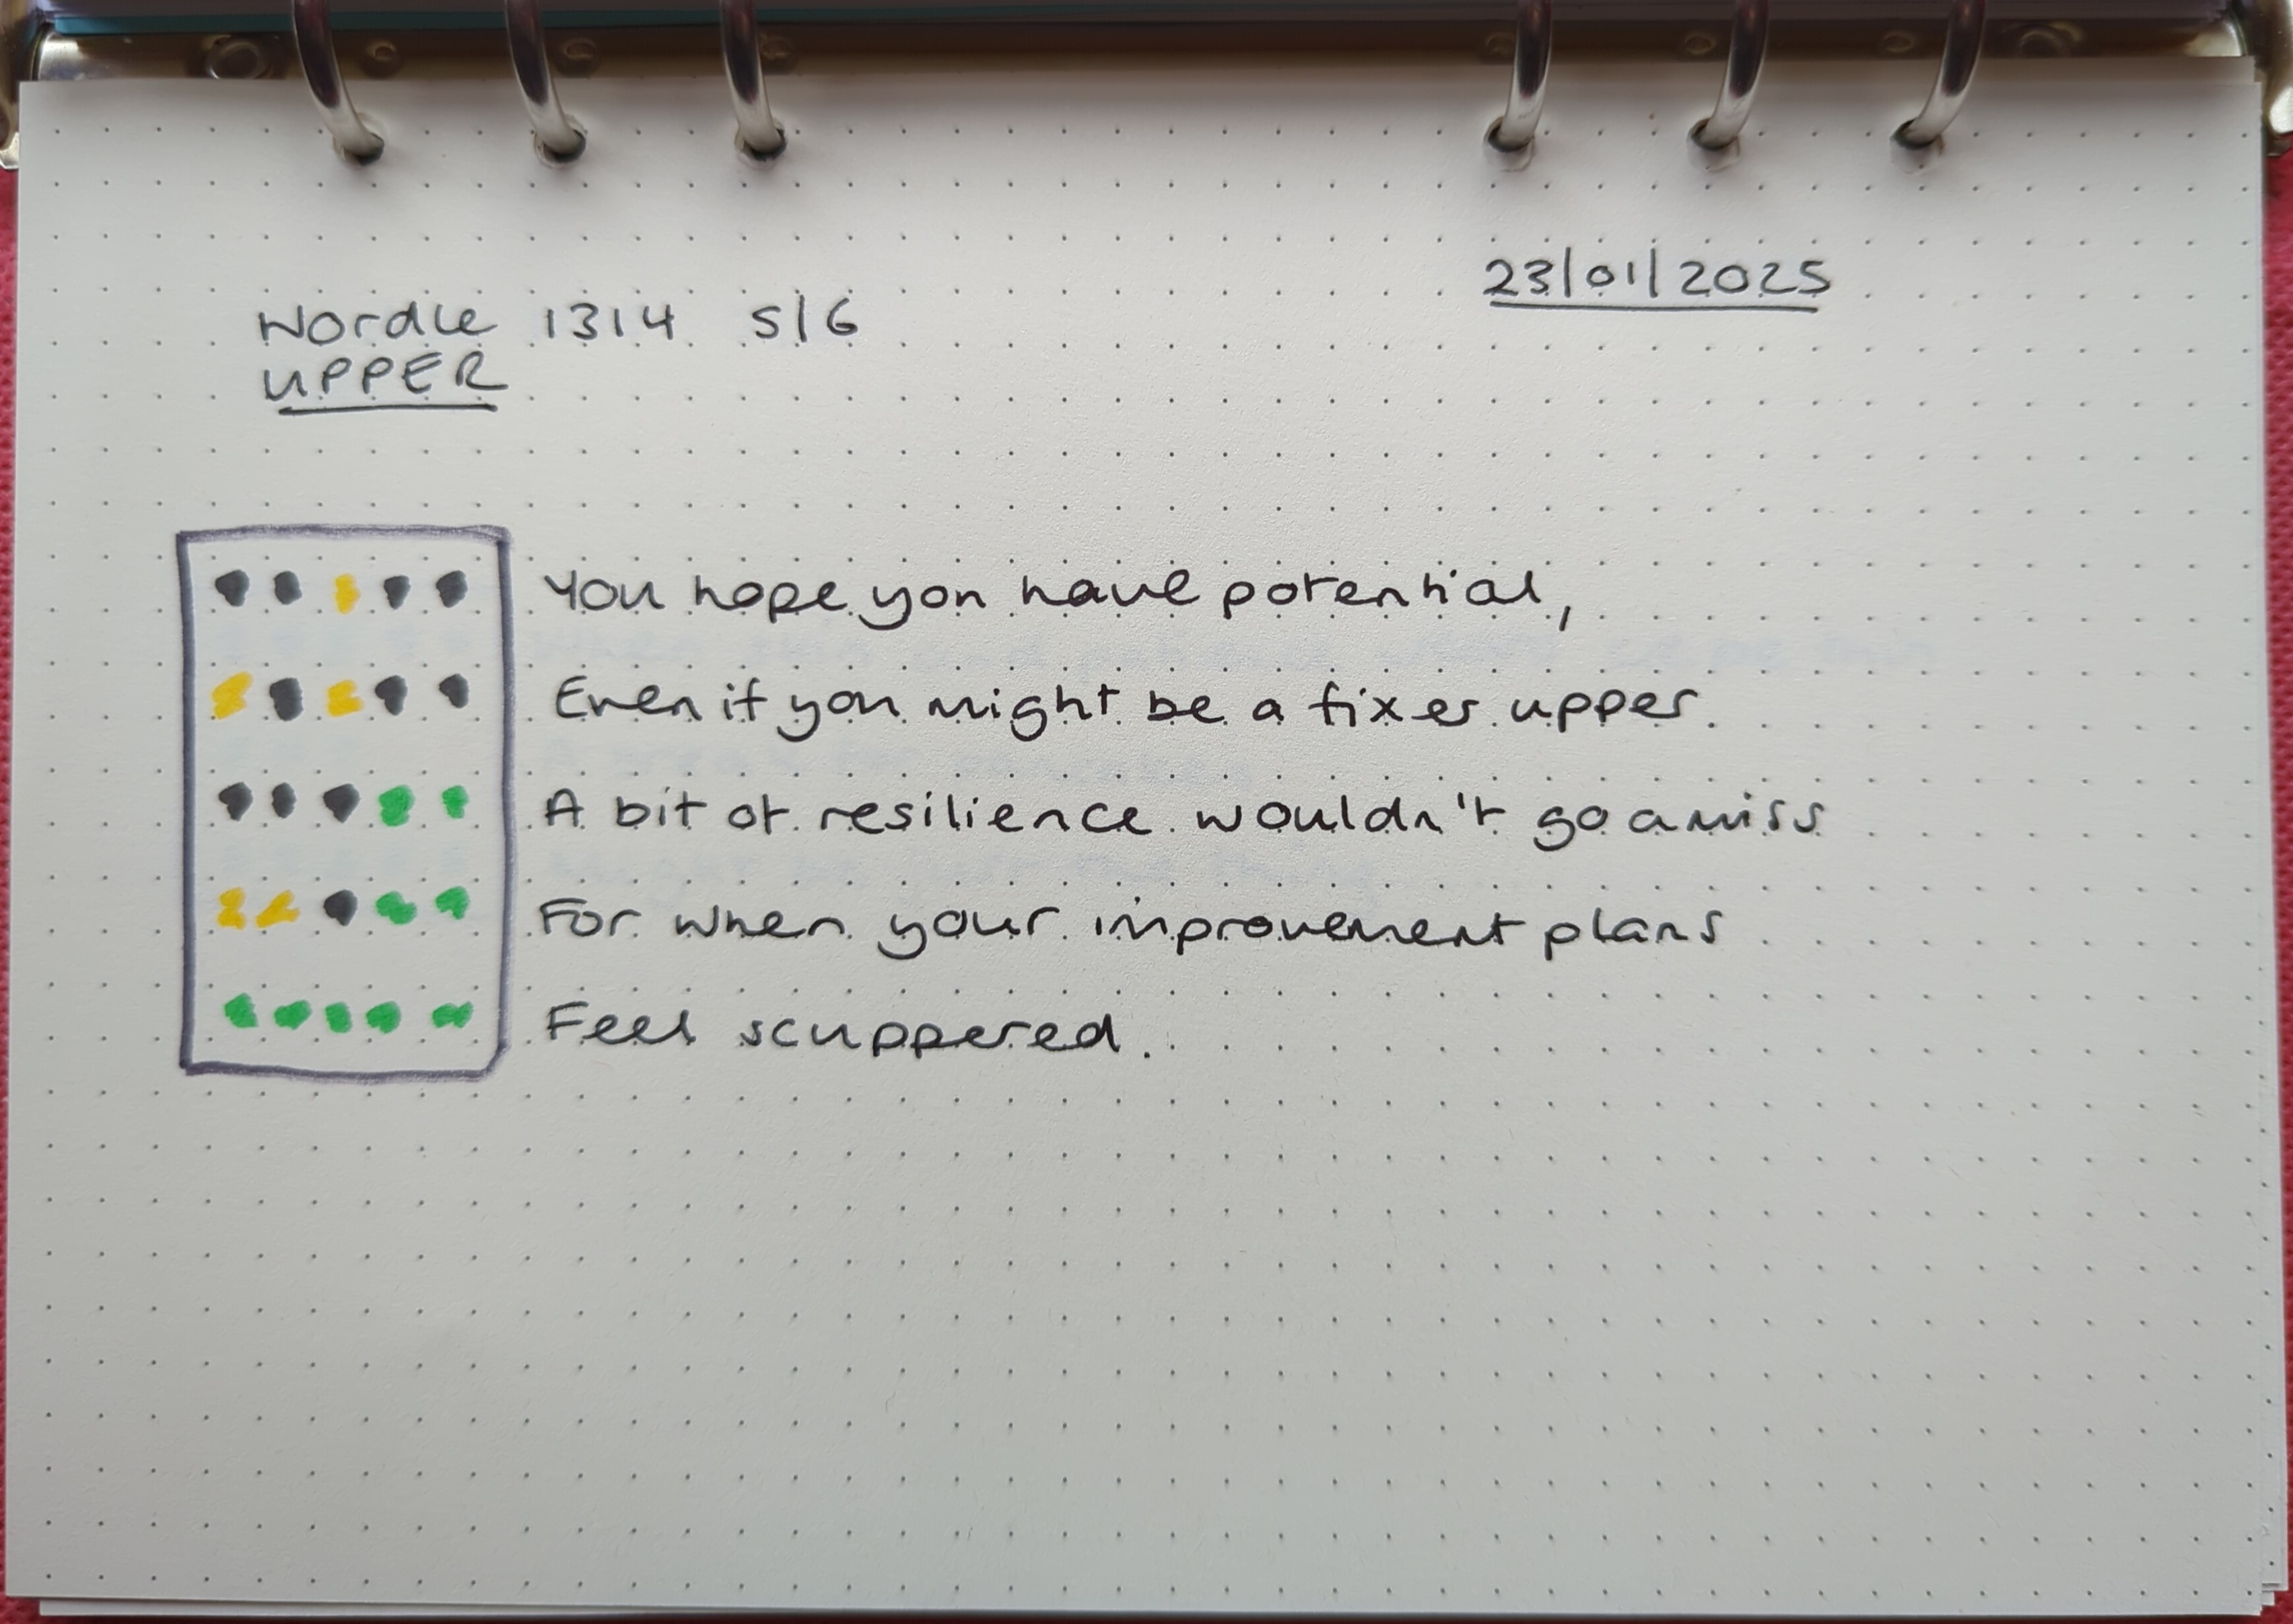 23/01/2025
Wordle 1314 5/6
UPPER
You hope you have potential,
Even if you might be a fixer upper.
A bit of resilience wouldn't go amiss
For when your improvement plans
Feel scuppered.